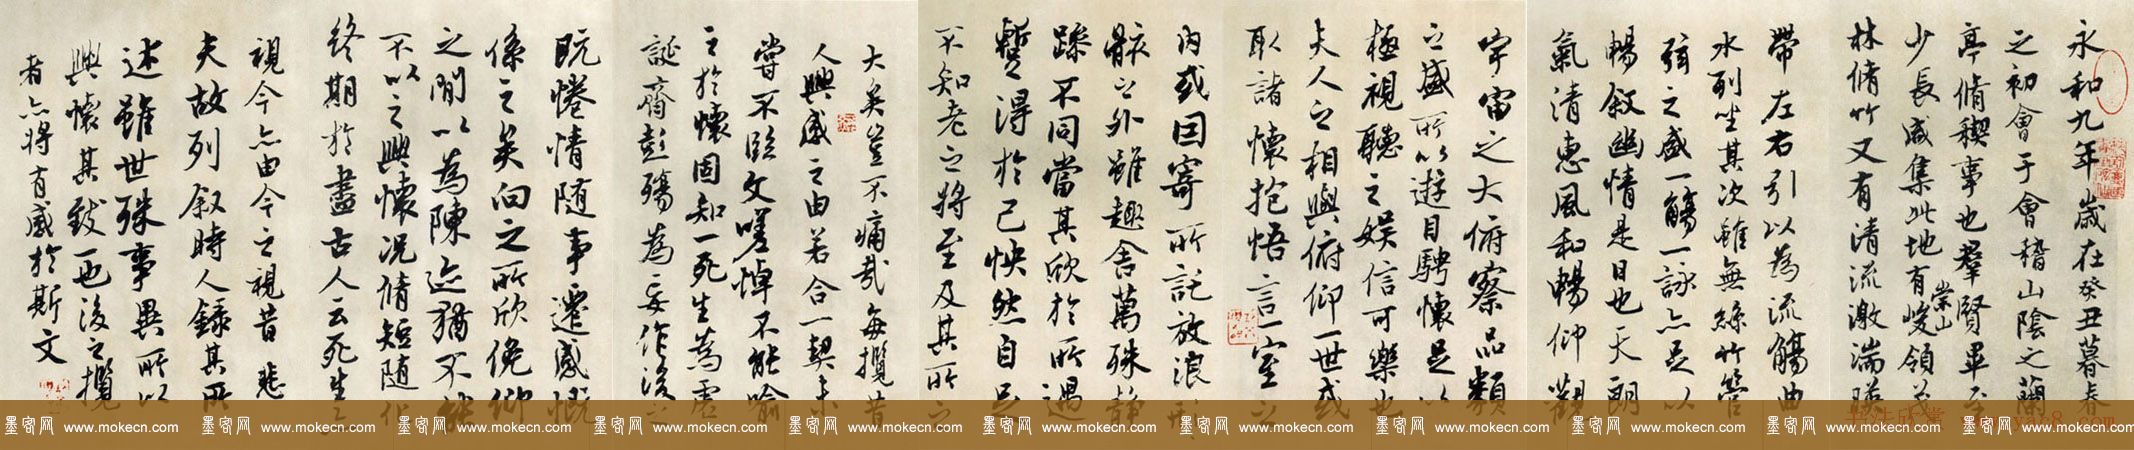 永和九年歲在癸丑暮春
之初會于會稽山陰之蘭
亭脩稧事也羣賢畢至
少長咸集此地有崇山峻領茂
林脩竹又有清流激湍暎
帶左右引以為流觴曲
水列坐其次雖無絲竹管
弦之盛一觴一詠亦足以
暢敘幽情是日也天朗
氣清惠風和暢仰觀
宇宙之大俯察品類
之盛所以遊目騁懷足以
極視聽之娛信可樂也
夫人之相與俯仰一世或
取諸懷抱悟言一室之
內或因寄所託放浪形
骸之外雖趣舍萬殊靜
躁不同當其欣於所遇
暫得於己怏然自足
不知老之將至及其所之
大矣豈不痛哉每攬昔
人興感之由若合一契未
嘗不臨文嗟悼不能喻
之於懷固知一死生為虛
誕齊彭殤為妄作後之
既惓情隨事遷感慨
係之矣向之所欣俛仰
之閒以為陳迹猶不能
不以之興懷況脩短隨化
終期於盡古人云死生亦
視今亦由今之視昔悲
夫故列敘時人錄其所
述雖世殊事異所以
興懷其致一也後之攬
者亦將有感於斯文
墨客网 www.mokecn.com 墨客网 www.mokecn.com 墨客网 www.mokecn.com 墨客网 www.mokecn.com 墨客网 www.mokecn.com 墨客网 www.mokecn.com 墨客网 www.mokecn.com 墨客网 www.mokecn.com 墨客网 www.mokecn.com 墨客网 www.mokecn.com 墨客网 www.mokecn.com